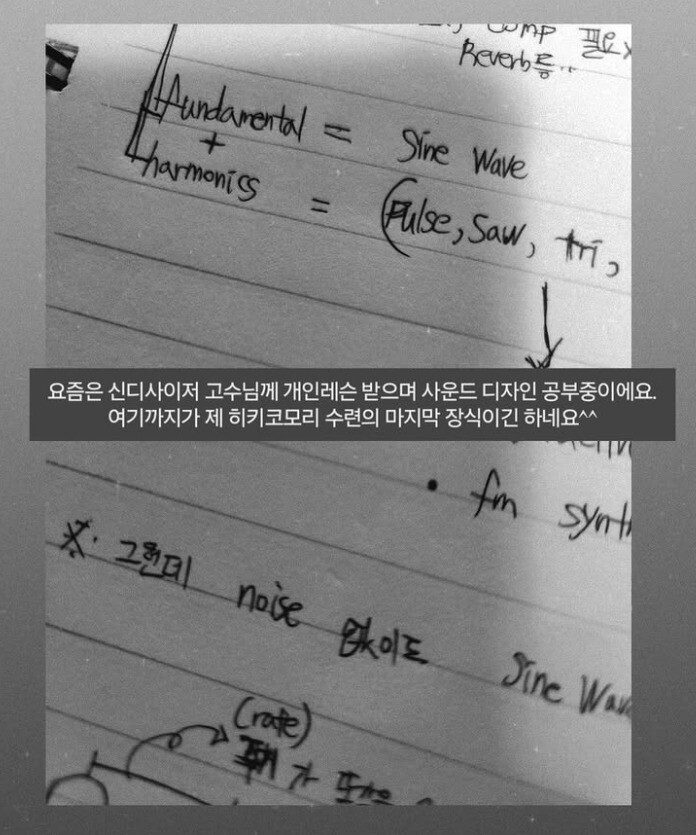 Comp 필요
Reverb등..
fundamental = Sine Wave
+
harmonics = (Pulse, Saw, tri,
요즘은 신디사이저 고수님께 개인레슨 받으며 사운드 디자인 공부중이에요.
여기까지가 제 히키코모리 수련의 마지막 장식이긴 하네요^^
• fm synth
※. 그런데 noise 없이도 Sine Wav
(rate)
가 또같은